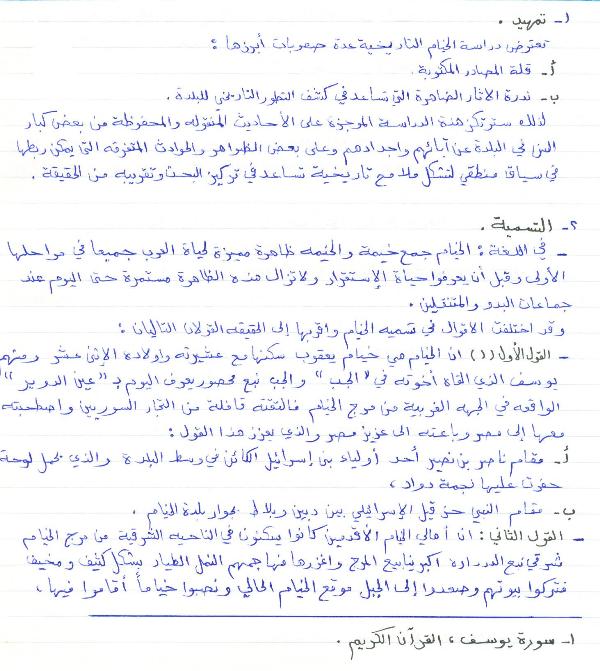 ١- تمهيد .
تعترض دراسة الخيام التاريخية عدة صعوبات أبرزها :
أ- قلة المصادر المكتوبة .
ب- ندرة الآثار الظاهرة التي تساعد في كشف التطور التاريخي للبلدة .
لذلك سترتكز هذه الدراسة الموجزة على الأحاديث المنقوله والمحفوظة من بعض كبار
السن في البلدة عن آبائهم واجدادهم وعلى بعض الظواهر والحوادث المتفرقه التي يمكن ربطها
في سياق منطقي لتشكل ملامح تاريخية تساعد في تركيز البحث وتقريبه من الحقيقة .
٢- التسمية .
- في اللغة : الخيام جمع خيمة والخيمه ظاهرة مميزة لحياة العرب جميعا في مراحلها
الأولى وقبل أن يعرفوا حياة الإستقرار ولا تزال هذه الظاهرة مستمرة حتى اليوم عند
جماعات البدو والمتنقلين .
وقد اختلفت الاقوال في تسميه الخيام واقربها إلى الحقيقه القولان التاليان :
- القول الأول (١) ان الخيام هي خيام يعقوب سكنها مع عشيرته واولاده الإثني عشر ومنهم
يوسف الذي القاه أخوته في "الجب" والجب نبع محصور يعرف اليوم بـ "عين الدردير"
الواقعه في الجهه الغربية من مرج الخيام فالتقته قافلة من التجار السوريين واصطحبته
معها إلى مصر وباعته الى عزيز مصر والذي يعزز هذا القول :
أ- مقام ناصر بن نصير أحد أولياء بني إسرائيل الكائن في وسط البلدة والذي يحمل لوحة
حفرت عليها نجمة دواد ،
ب- مقام النبي حزقيل الإسرائيلي بين دبين وبلاط بجوار بلدة الخيام .
- القول الثاني : ان أهالي الخيام الأقدمين كانوا يسكنون في الناحيه الشرقية من مرج الخيام
شرقي نبع الدردارة اكبر ينابيع المرج واغزرها فهاجمهم النمل الطيار بشكل كثيف ومخيف
فتركوا بيوتهم وصعدوا إلى الجبل موقع الخيام الحالي ونصبوا خياماً أقاموا فيها ،
١- سورة يوسف ، القرآن الكريم .